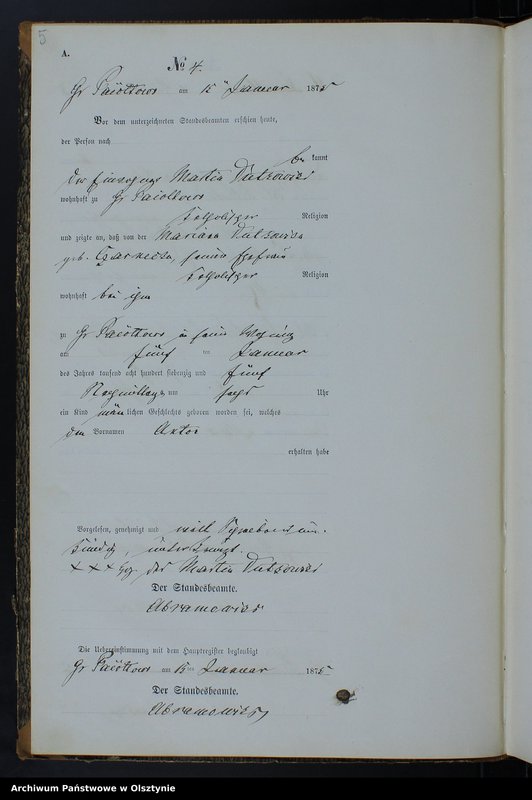 5
A.
No 4.
Gr Paiottowo am 15 ten Januar 1875
Vor dem unterzeichneten Standesbeamten erschien heute,
der Person nach
be kannt
der Martin Dutkowski
wohnhaft zu Gr Paiottowo
katholischer Religion
und zeigte an, daß von der Mariana
geb. Czarnecka, seiner Ehefrau
katholischer Religion
wohnhaft bei ihm
zu Gr Paiottowo in seiner Wohnung
am fünf ten Januar
des Jahres tausend acht hundert siebenzig und fünf
Nachmittags um sechs Uhr
ein Kind männlichen Geschlechts geboren worden sei, welches
den Vornamen Anton
erhalten habe
Vorgelesen, genehmigt und weil Schreibens un-
kundig, unterkreuzt.
+ + + der Martin Dutkowski
Der Standesbeamte.
Abramowski
Die Uebereinstimmung mit dem Hauptregister beglaubigt
Gr Paiottowo am 15 ten Januar 1875
Der Standesbeamte.
Abramowski
Archiwum Państwowe w Olsztynie